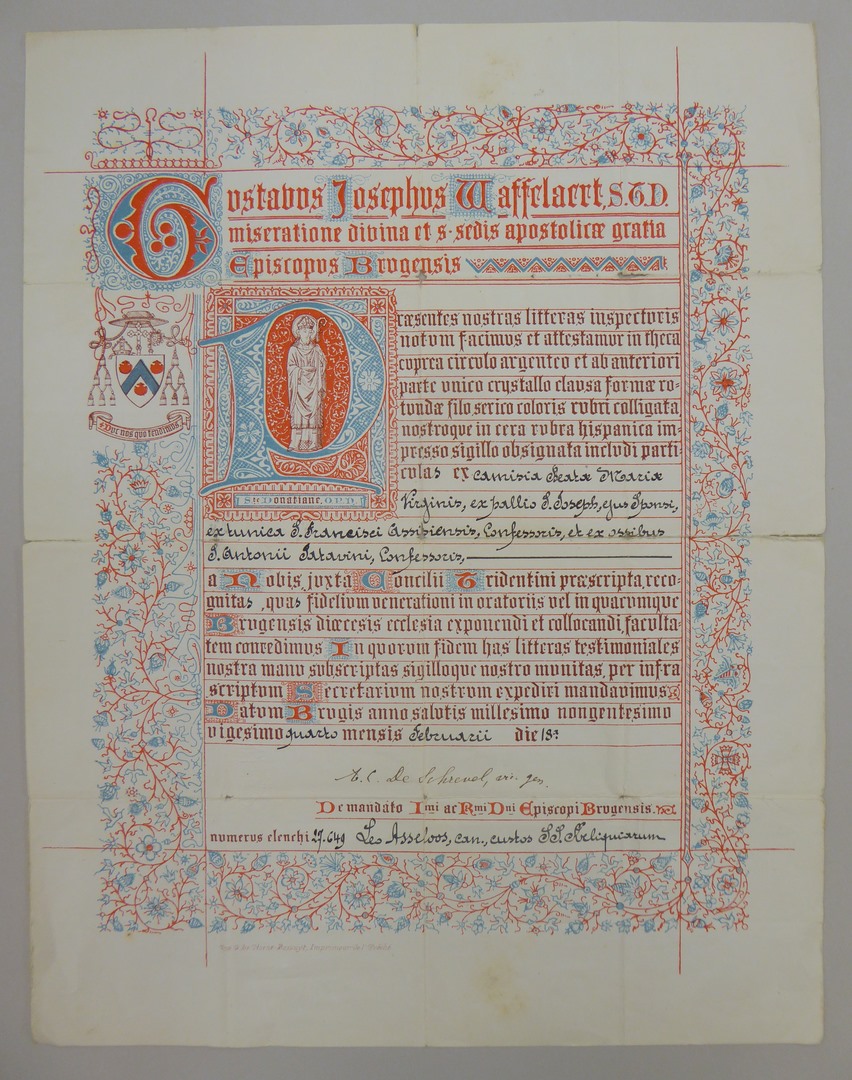 Gvstavvs Josephvs Waffelaert, S.T.D.
miseratione divina et s. sedis apostolicæ gratia
Episcopvs Brvgensis
Præsentes nostras litteras inspectvris
notvm facimvs et attestamvr in theca
cvprea circvlo argenteo et ab anteriori
parte vnico crystallo clavsa formæ ro-
tvndæ filo serico coloris rvbri colligata
nostroqve in cera rvbra hispanica im-
presso sigillo obsignata inclvdi parti
cvlas ex camisia Beatæ Mariæ
Dvc nos qvo tendimvs
S. Donatiane, O.P.N.
Virginis, ex pallio S. Joseph, ejus Sponsi,
ex tunica S. Francisci Assisiensis, Confessoris, et ex ossibus
S. Antonii Patavini, Confessoris,
a Nobis, jvxta Concilii Tridentini præscripta, reco-
gnitas, qvas fidelivm venerationi in oratoriis vel in qvacvmqve
Brvgensis diœcesis ecclesia exponendi et collocandi, facvlta-
tem concedimvs In qvorvm fidem has litteras testimoniales
nostra manv svbscriptas sigilloqve nostro mvnitas, per infra
scriptvm Secretarivm nostrvm expediri mandavimvs
Datvm Brvgis anno salvtis millesimo nongentesimo
vigesimo quarto mensis Februarii die 18ᵃ
A. C. De Schrevel, vic. gen.
De mandato Imi ac Rmi Dni Episcopi Brvgensis.
nvmervs elenchi 27.649 Leo Asseloos, can., custos SS. Reliquiarum